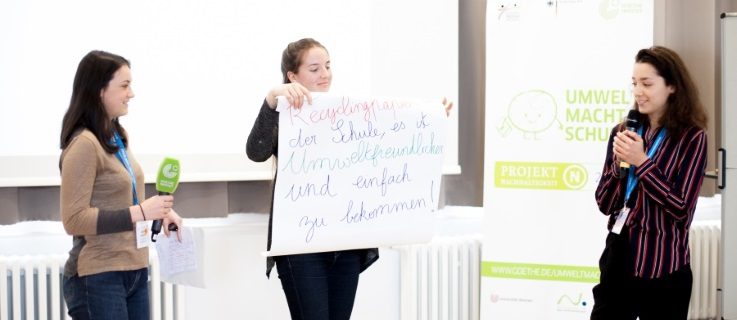 Recyclingpapier
der Schule, es ist
Umweltfreundlicher
und einfach
zu bekommen!
GOETHE
INSTITUT
UMWELT
MACHT
SCHULE
PROJEKT N
NACHHALTIGKEIT
WWW.GOETHE.DE/UMWELTMA